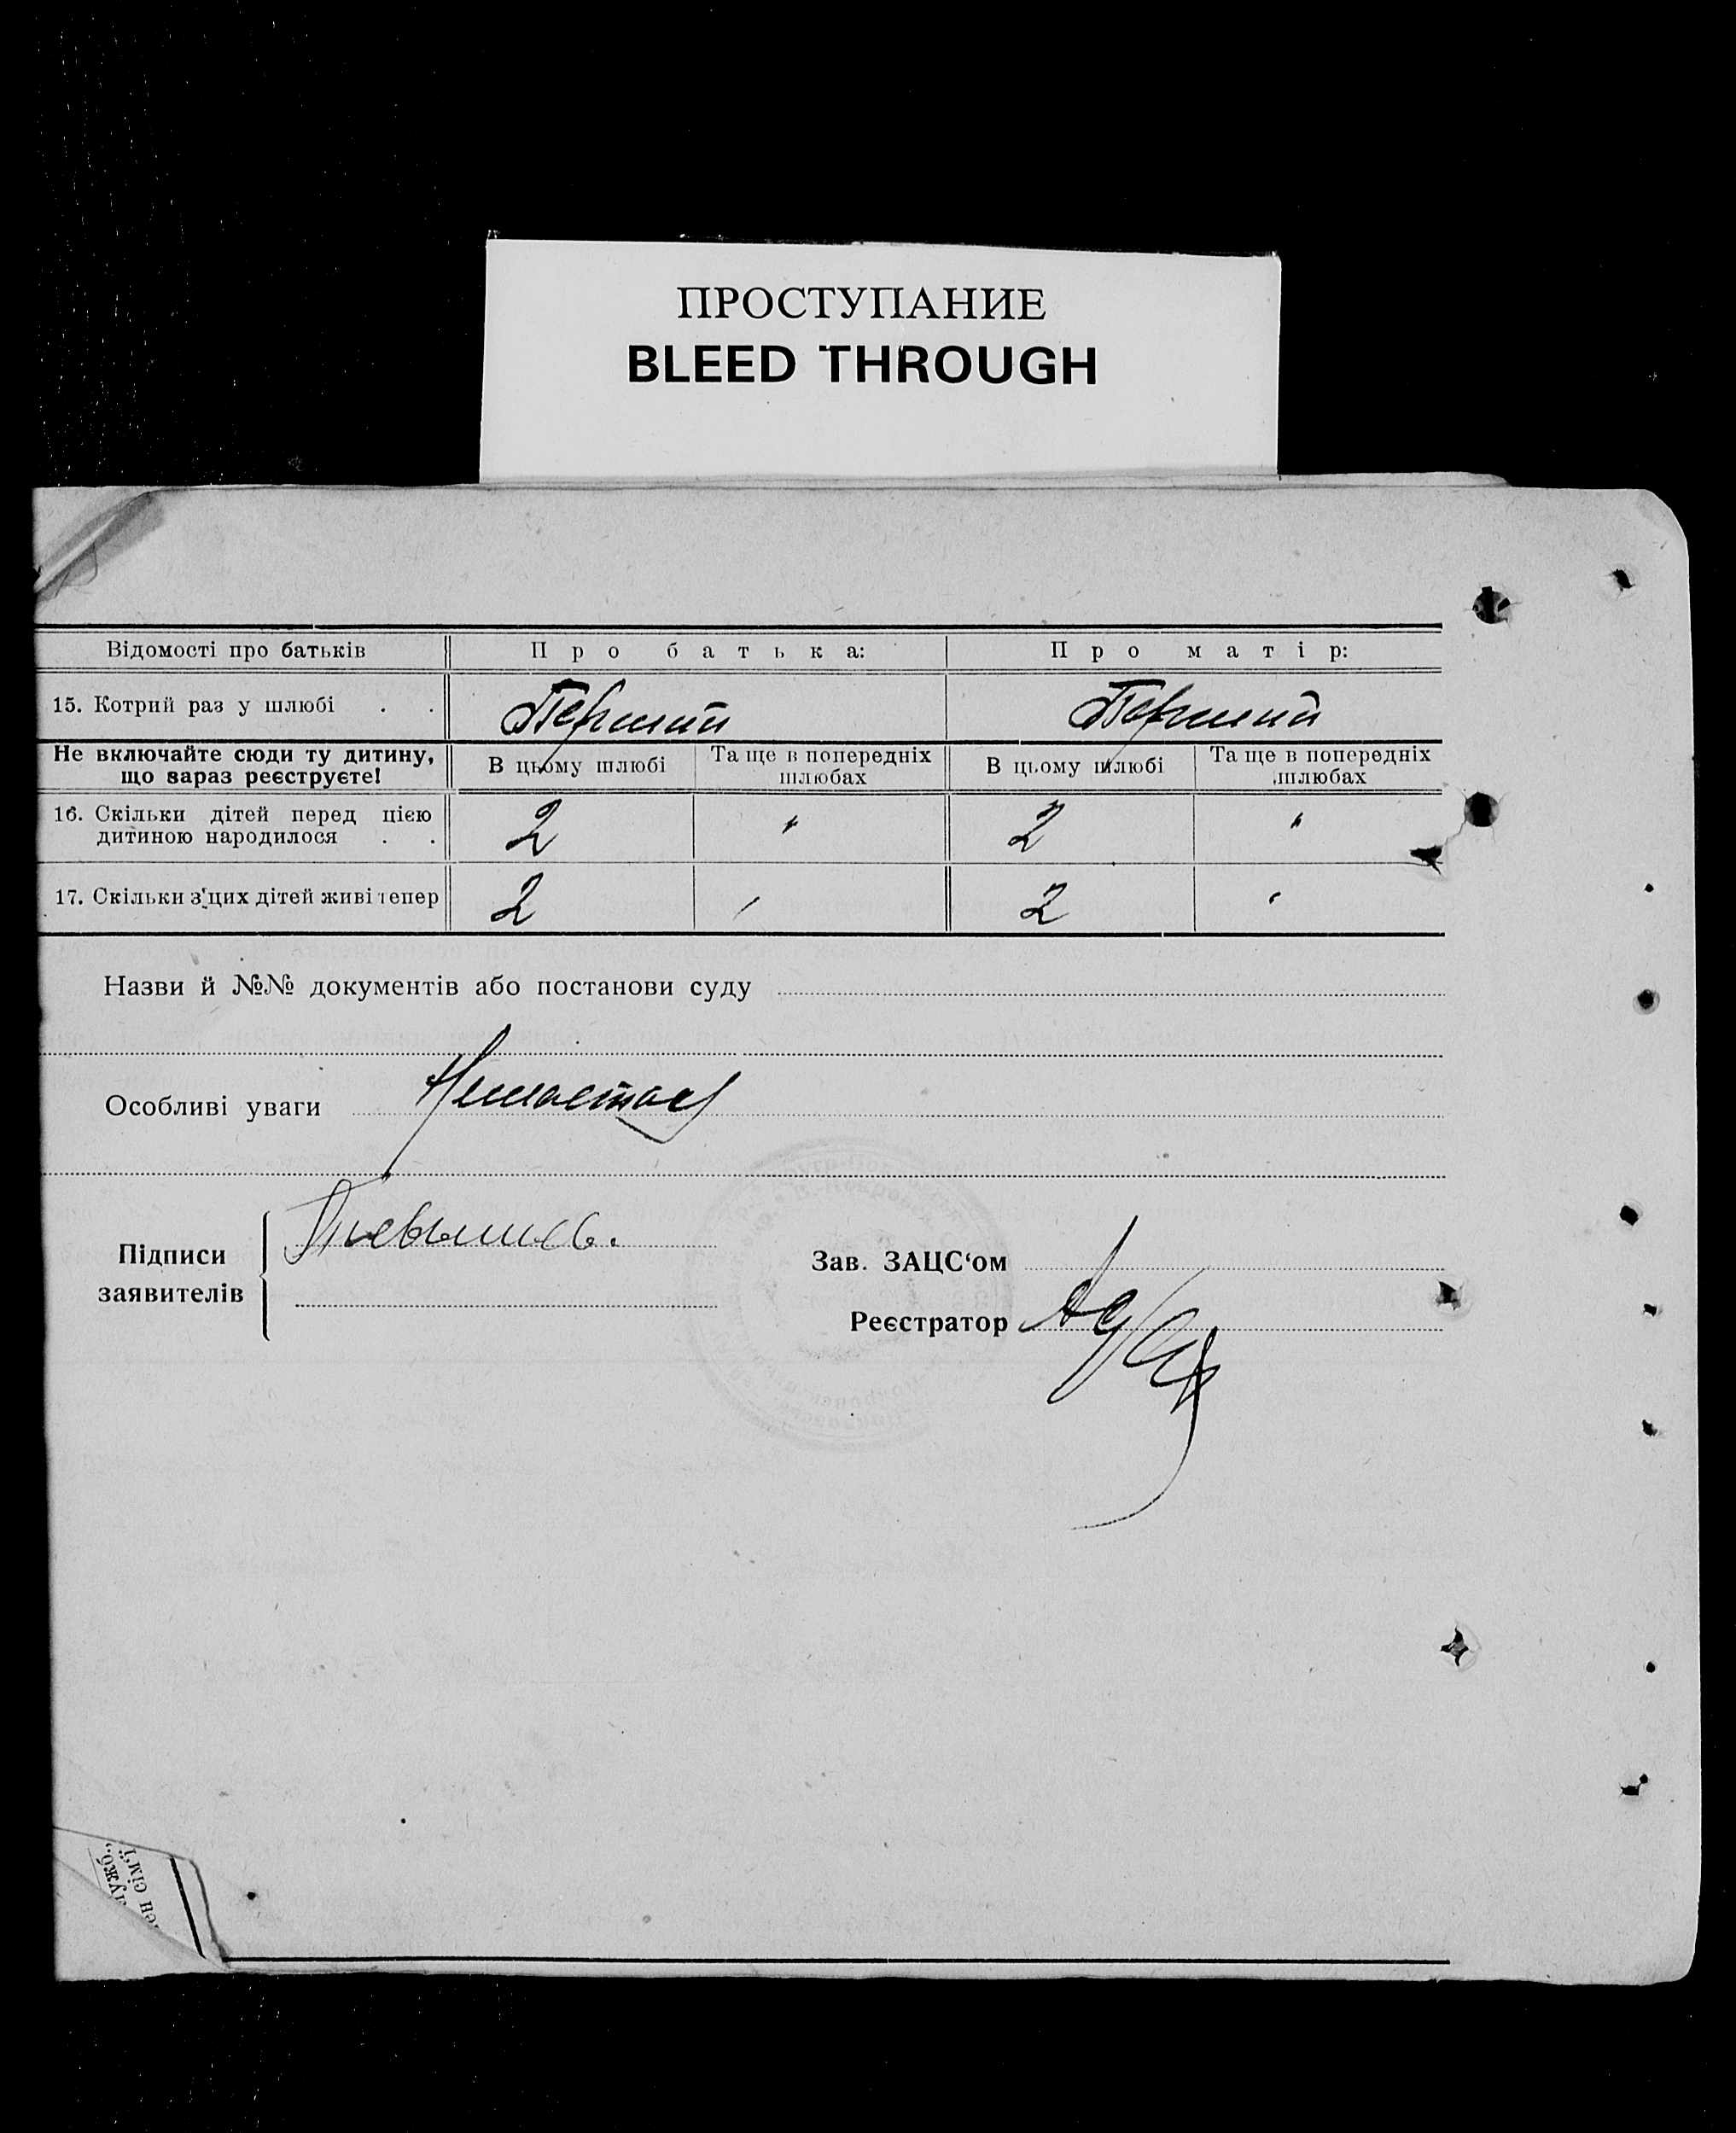 ПРОСТУПАНИЕ
BLEED THROUGH
Відомості про батьків Про батька: Про матір:
15. Котрий раз у шлюбі . . Перший Перший
Не включайте сюди ту дитину, що зараз реєструєте! В цьому шлюбі Та ще в попередніх шлюбах В цьому шлюбі Та ще в попередніх шлюбах
16. Скільки дітей перед цією дитиною народилося . . 2 " 2 "
17. Скільки з цих дітей живі тепер 2 " 2 "
Назви й №№ документів або постанови суду
Особливі уваги
Підписи
заявителів
Зав. ЗАЦС‘ом
Реєстратор
служб.,
ен сім'ї